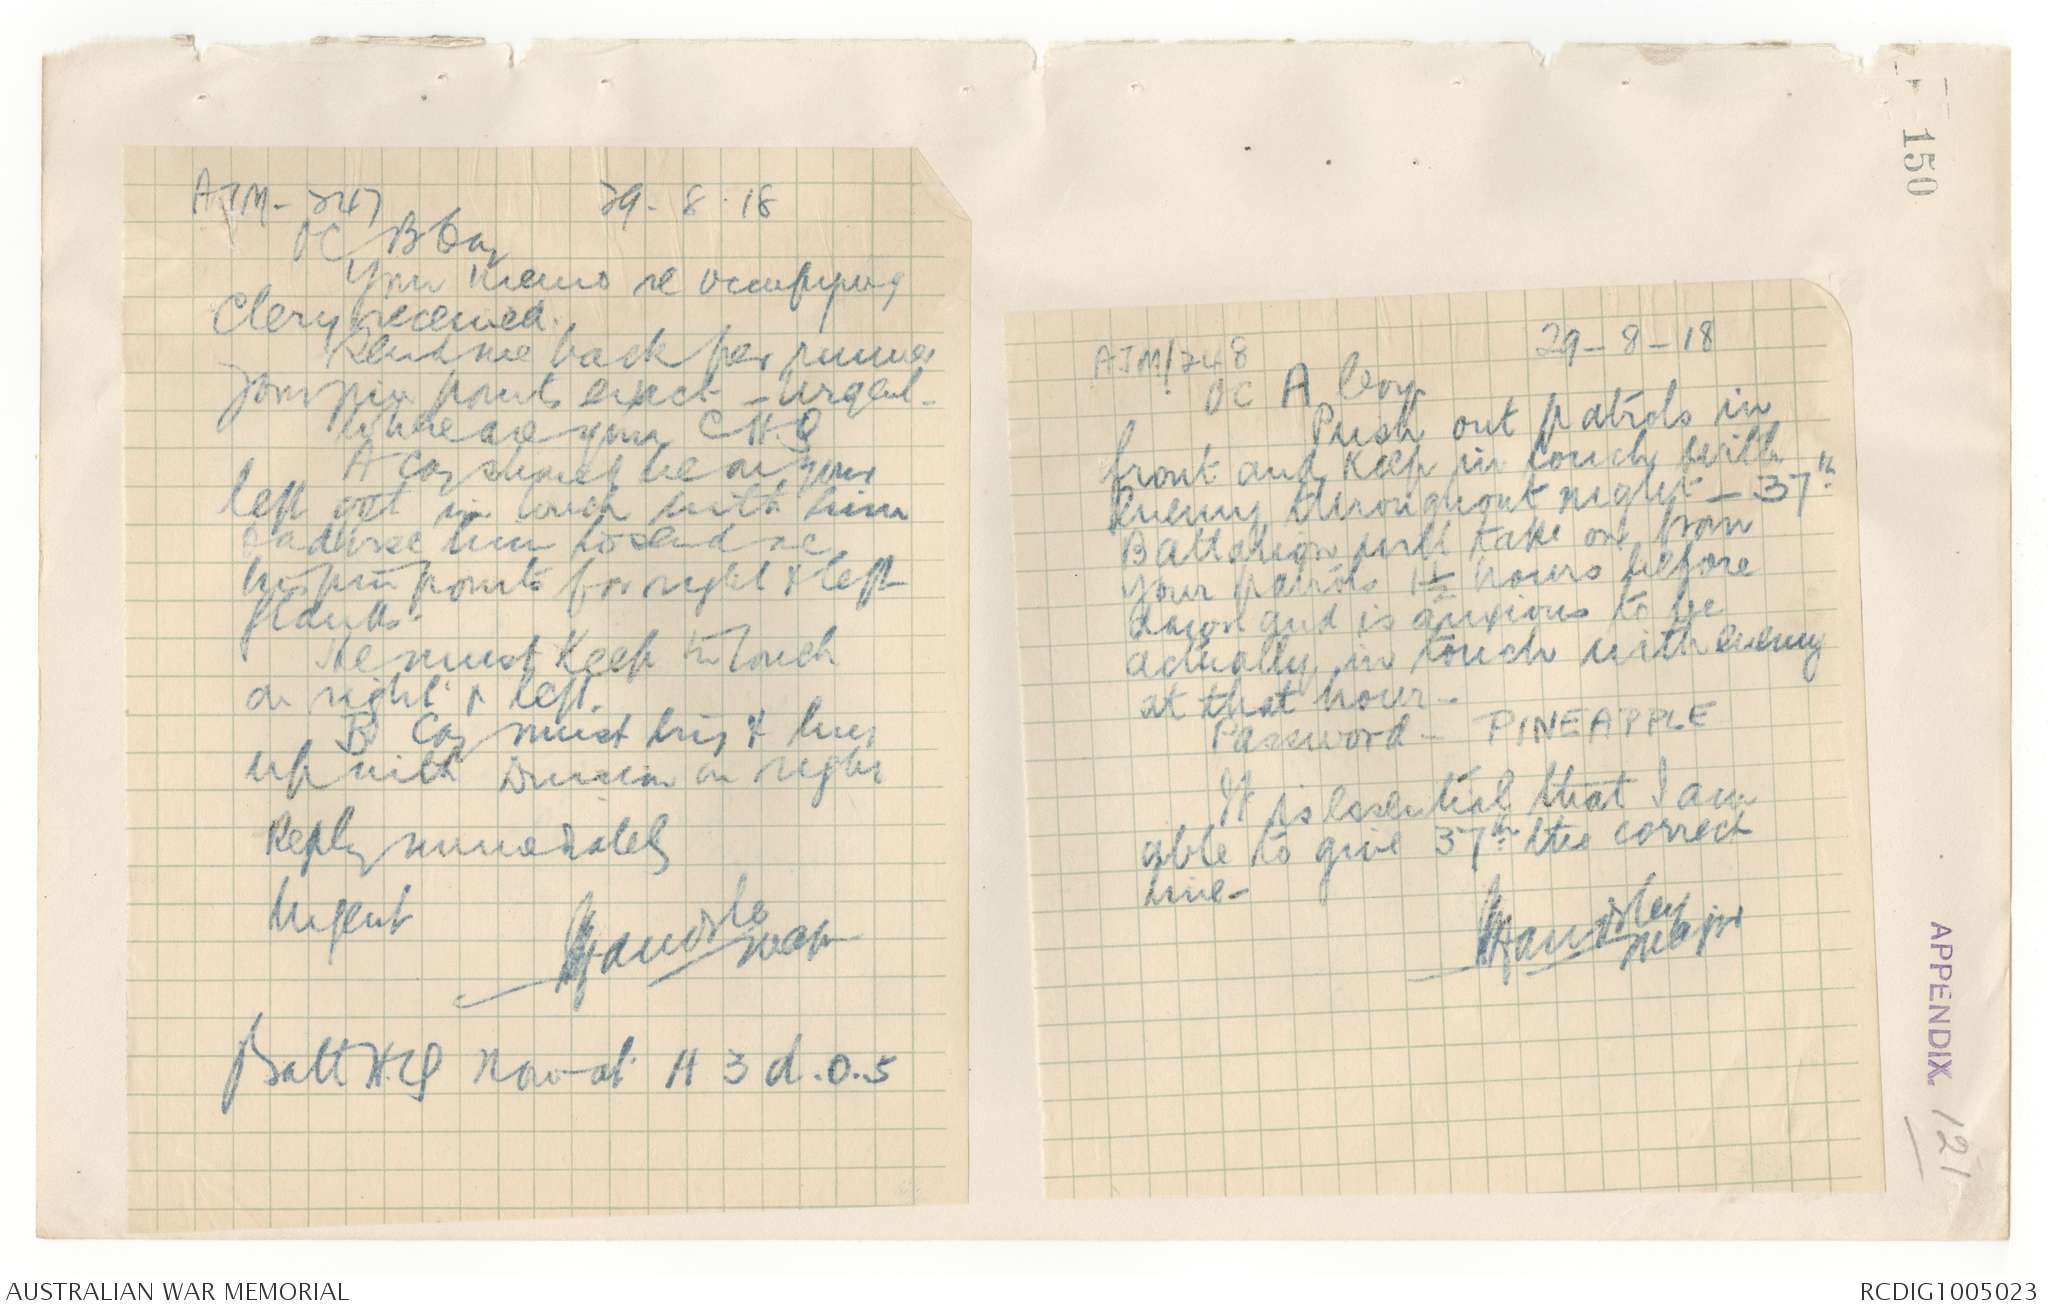 AJM-747 29-8-18
OC B Coy
Your memo re occupying
Clery received.
Send me back per runner
your pin points exact - urgent -
Where are your CHQ
A Coy should be on your
left get in touch with him
& advise him to send me
his pin points for right & left
flanks.
He must keep in touch
on right & left.
B Coy must try & link
up with Division on right
Reply immediately
Urgent
Major
Batt HQ now at H 3 d.0.5
AJM/748 29-8-18
OC A Coy
Push out patrols in
front and keep in touch with
Enemy throughout night - 37th
Battalion will take on from
your patrols 1½ hours before
dawn and is anxious to be
actually in touch with enemy
at that hour -
Password - PINEAPPLE
It is essential that I am
able to give 37th the correct
line -
Major
150
APPENDIX.
121
AUSTRALIAN WAR MEMORIAL
RCDIG1005023